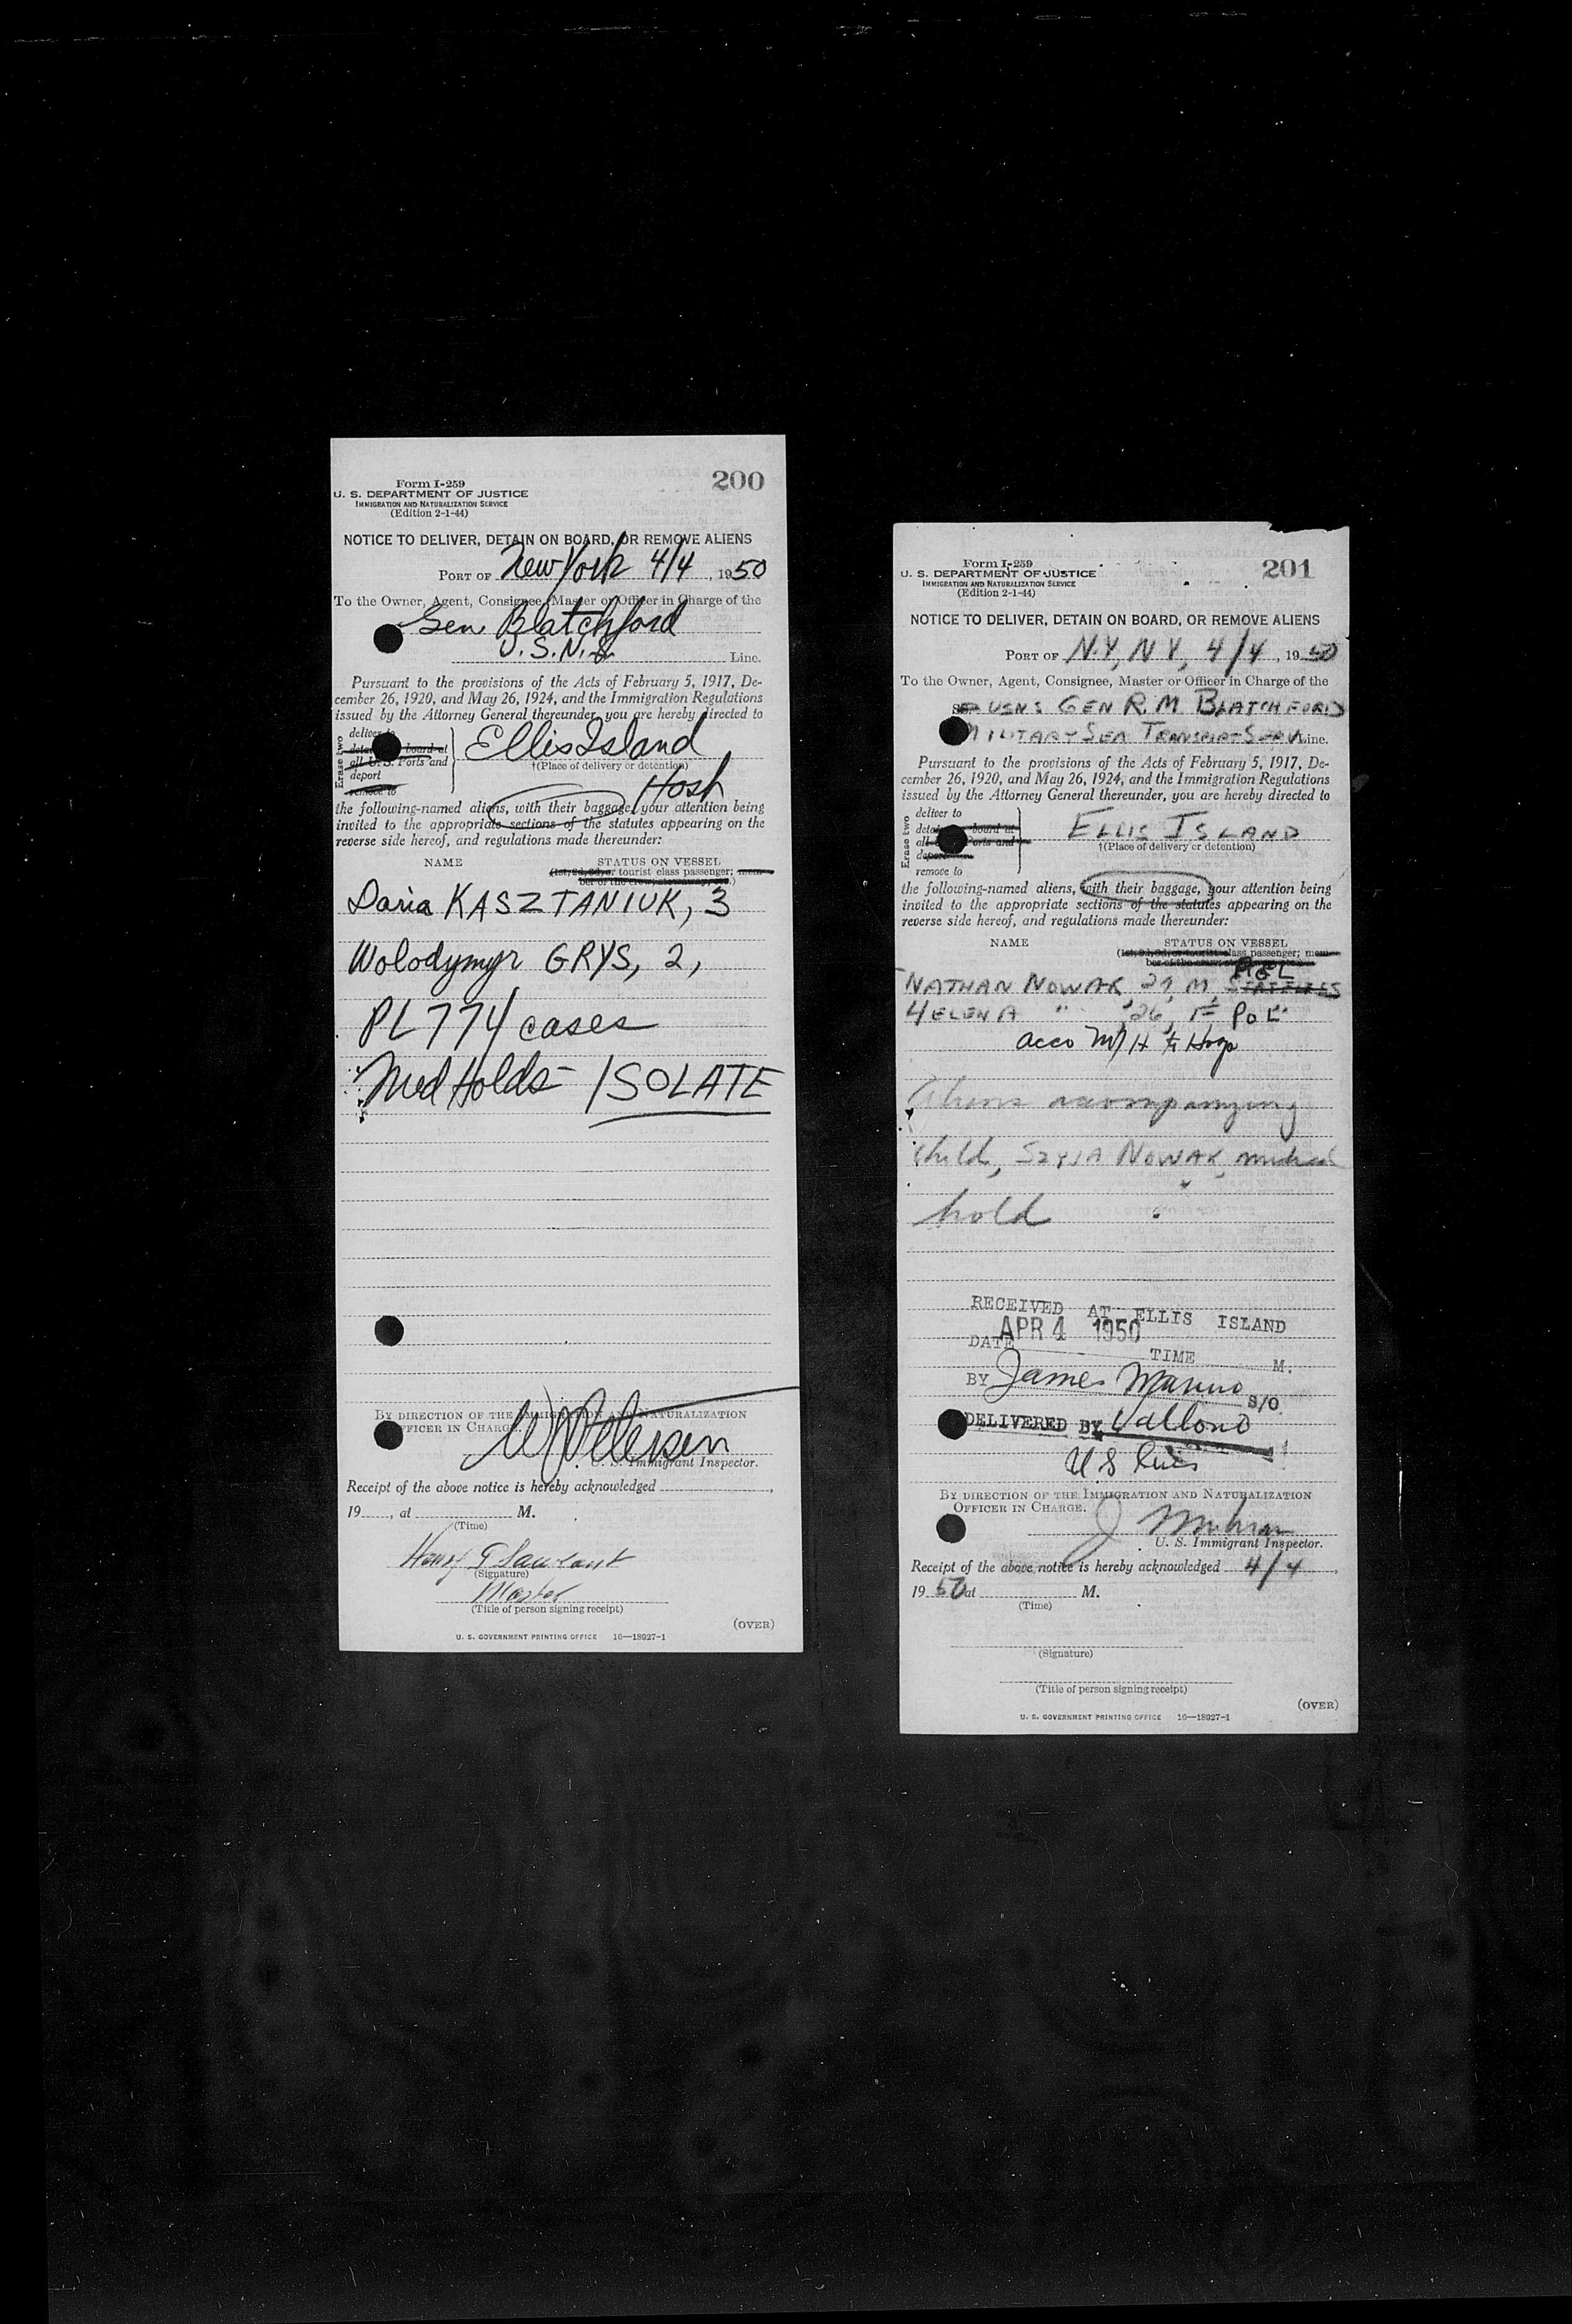 200
Form I-259
U. S. DEPARTMENT OF JUSTICE
IMMIGRATION AND NATURALIZATION SERVICE
(Edition 2-1-44)
NOTICE TO DELIVER, DETAIN ON BOARD, OR REMOVE ALIENS
PORT OF New York 4/4, 1950
To the Owner, Agent, Consignee, Master or Officer in Charge of the
Gen Blatchford
U.S.N.S. Line.
Pursuant to the provisions of the Acts of February 5, 1917, De-
cember 26, 1920, and May 26, 1924, and the Immigration Regulations
issued by the Attorney General thereunder, you are hereby directed to
Erase two
deliver to
board at
all U. S. Ports and
deport
remove to
Ellis Island
†(Place of delivery or detention)
Hosp
the following-named aliens, with their baggage, your attention being
invited to the appropriate sections of the statutes appearing on the
reverse side hereof, and regulations made thereunder:
NAME STATUS ON VESSEL
(1st, 2d, 3d, or tourist class passenger; mem-
ber of the crew; stowaway, etc.)
Daria KASZTANIUK, 3
Wolodymyr GRYS, 2,
PL 774 cases
Med Holds - ISOLATE
BY DIRECTION OF THE IMMIGRATION AND NATURALIZATION
OFFICER IN CHARGE.
U. S. Immigrant Inspector.
Receipt of the above notice is hereby acknowledged
19 , at M.
(Time)
(Signature)
Master
(Title of person signing receipt)
(OVER)
U. S. GOVERNMENT PRINTING OFFICE 16—18927-1
201
Form I-259
U. S. DEPARTMENT OF JUSTICE
IMMIGRATION AND NATURALIZATION SERVICE
(Edition 2-1-44)
NOTICE TO DELIVER, DETAIN ON BOARD, OR REMOVE ALIENS
PORT OF N.Y, N Y, 4/4, 1950
To the Owner, Agent, Consignee, Master or Officer in Charge of the
USNS GEN R. M BLATCHFORD
MILITARY SEA TRANSPORT SERV. Line.
Pursuant to the provisions of the Acts of February 5, 1917, De-
cember 26, 1920, and May 26, 1924, and the Immigration Regulations
issued by the Attorney General thereunder, you are hereby directed to
Erase two
deliver to
board at
Ports and
deport
remove to
ELLIS ISLAND
†(Place of delivery or detention)
the following-named aliens, with their baggage, your attention being
invited to the appropriate sections of the statutes appearing on the
reverse side hereof, and regulations made thereunder:
NAME STATUS ON VESSEL
(1st, 2d, 3d, or tourist class passenger; mem-
ber of the crew; stowaway, etc.)
NATHAN NOWAK 27, M, STATELESS
HELENA " 26, F POL
acco M/H to Hosp
Aliens accompanying
child, SZYJA NOWAK, medical
hold
RECEIVED AT ELLIS ISLAND
DATE APR 4 1950
TIME M.
BY James S/O
DELIVERED BY
U.S
BY DIRECTION OF THE IMMIGRATION AND NATURALIZATION
OFFICER IN CHARGE.
U. S. Immigrant Inspector.
Receipt of the above notice is hereby acknowledged 4/4,
19 50 at M.
(Time)
(Signature)
(Title of person signing receipt)
(OVER)
U. S. GOVERNMENT PRINTING OFFICE 16—18927-1